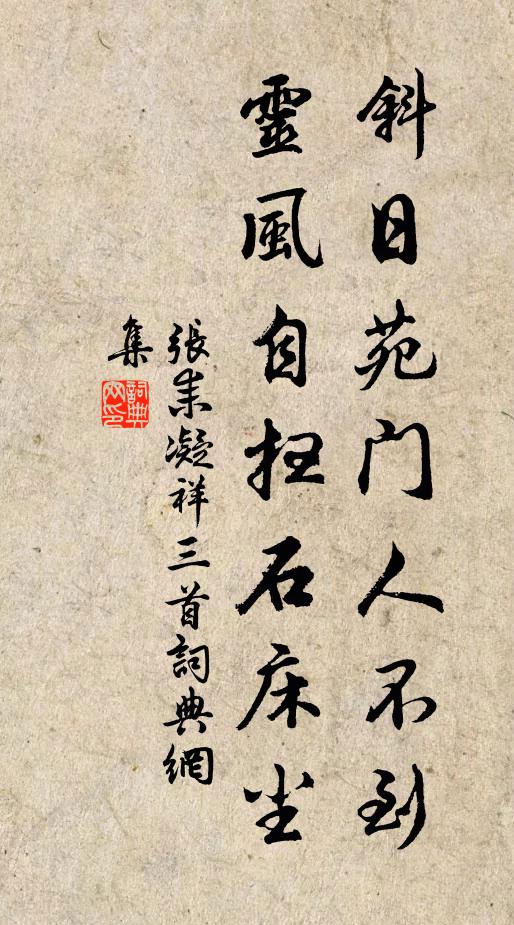 斜日苑門人不到
靈風自扫石床尘
張耒凝祥三首詞典網
集
詞典网印